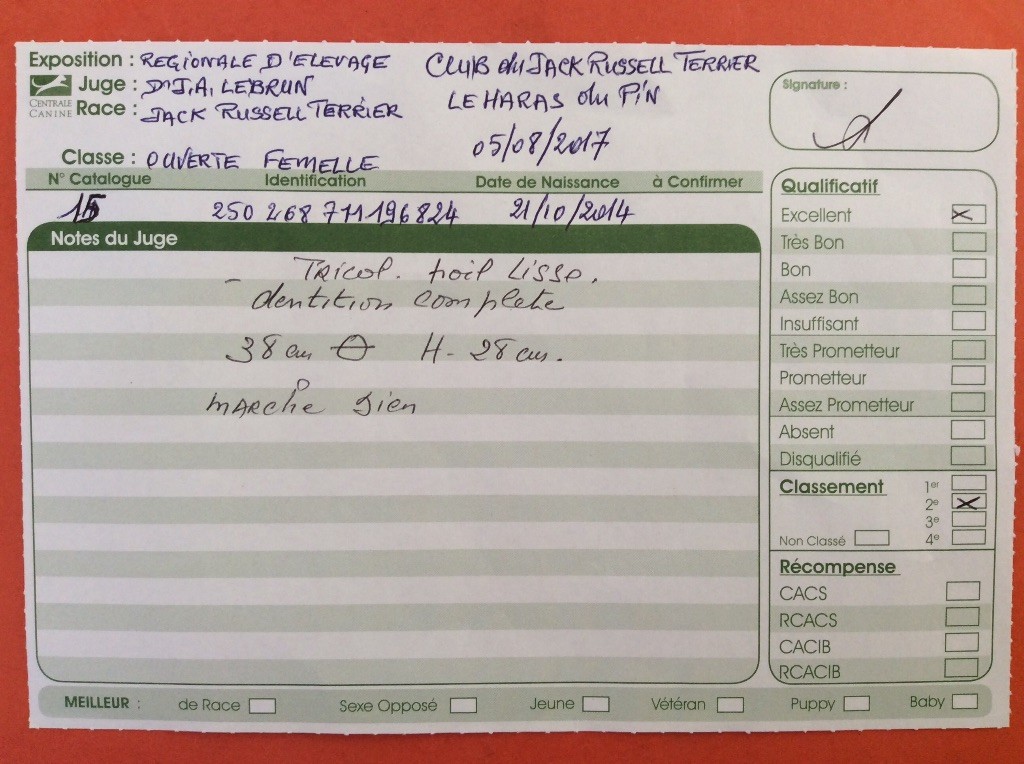 Exposition : REGIONALE D'ELEVAGE CLUB du JACK RUSSELL TERRIER
Juge : Dr J.A. LEBRUN LE HARAS du PIN
CENTRALE CANINE
Race : JACK RUSSELL TERRIER
05/08/2017
Classe : OUVERTE FEMELLE
Signature :
N° Catalogue Identification Date de Naissance à Confirmer
15 250 268 711196824 21/10/2014
Notes du Juge
- Tricol. poil Lisse.
dentition complete
38 cm H- 28 cm.
MARche Bien
Qualificatif
Excellent X
Très Bon
Bon
Assez Bon
Insuffisant
Très Prometteur
Prometteur
Assez Prometteur
Absent
Disqualifié
Classement 1er
2e X
3e
Non Classé 4e
Récompense
CACS
RCACS
CACIB
RCACIB
MEILLEUR : de Race Sexe Opposé Jeune Vétéran Puppy Baby